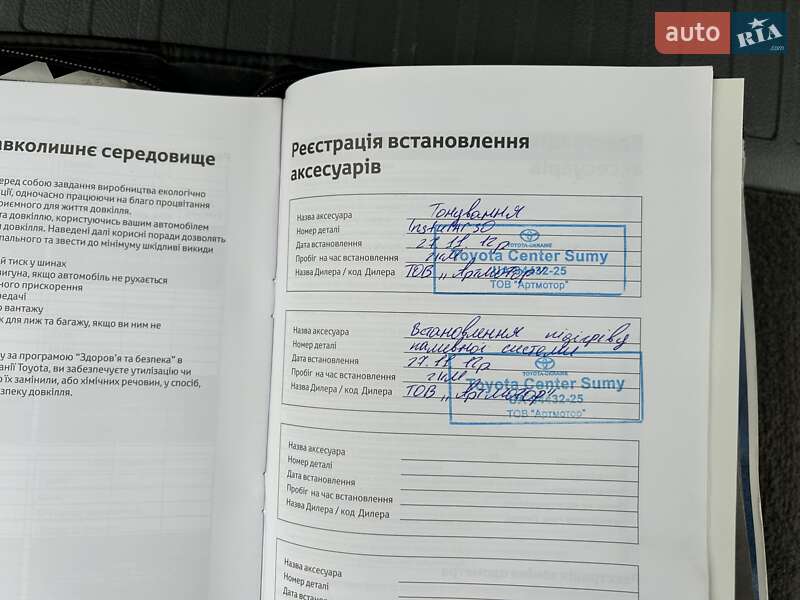 auto RIA .com
авколишнє середовище
еред собою завдання виробництва екологічно
ції, одночасно працюючи на благо процвітання
риємного для життя довкілля.
та довкіллю, користуючись вашим автомобілем
. Наведені далі корисні поради дозволять
пального та звести до мінімуму шкідливі викиди
й тиск у шинах
вигуна, якщо автомобіль не рухається
ного прискорення
ередачі
о вантажу
к для лиж та багажу, якщо ви ним не
у за програмою "Здоров'я та безпека" в
анії Toyota, ви забезпечуєте утилізацію чи
о їх замінили, або хімічних речовин, у спосіб,
зпеку довкілля.
Реєстрація встановлення
аксесуарів
Назва аксесуара Тонування
Номер деталі
Дата встановлення 27.11.12р
Пробіг на час встановлення 2 км
Назва Дилера / код Дилера ТОВ "Артмотор"
TOYOTA-UKRAINE
Toyota Center Sumy
432-25
ТОВ "Артмотор"
Назва аксесуара Встановлення підігріву
Номер деталі паливної системи
Дата встановлення 27.11.12р
Пробіг на час встановлення 2 км
Назва Дилера / код Дилера ТОВ "Артмотор"
TOYOTA-UKRAINE
Toyota Center Sumy
432-25
ТОВ "Артмотор"
Назва аксесуара
Номер деталі
Дата встановлення
Пробіг на час встановлення
Назва Дилера / код Дилера
Назва аксесуара
Номер деталі
Дата встановлення